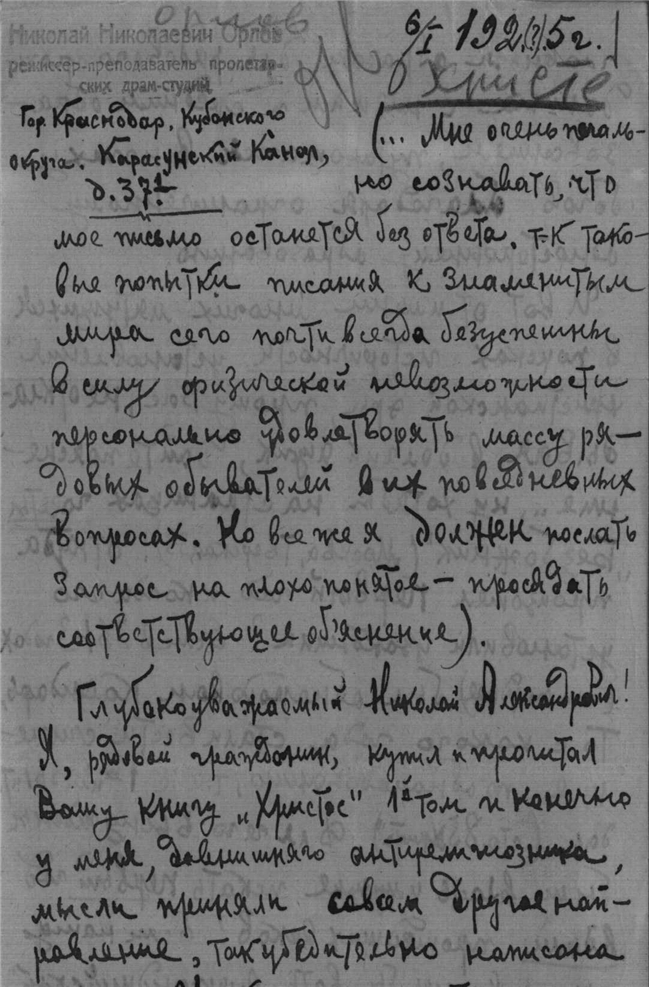 Орлов
6/I 192(?)5г.
Николай Николаевич Орлов
режиссер-преподаватель пролетар-
ских драм-студий
О Христе
Гор. Краснодар, Кубанского
округа. Карасунский Канал,
д. 37.
(... Мне очень печаль-
но сознавать, что
мое письмо останется без ответа, т-к тако-
вые попытки писания к знаменитым
мира сего почти всегда безуспешны
в силу физической невозможности
персонально удовлетворять массу ря-
довых обывателей в их повседневных
вопросах. Но все же я должен послать
запрос на плохо понятое – прося дать
соответствующее об'яснение).
Глубокоуважаемый Николай Александрович!
Я, рядовой гражданин, купил и прочитал
Вашу книгу "Христос" 1й том и конечно
у меня, давнишняго антирелигиозника,
мысли приняли совсем другое нап-
равление, так убедительно написана